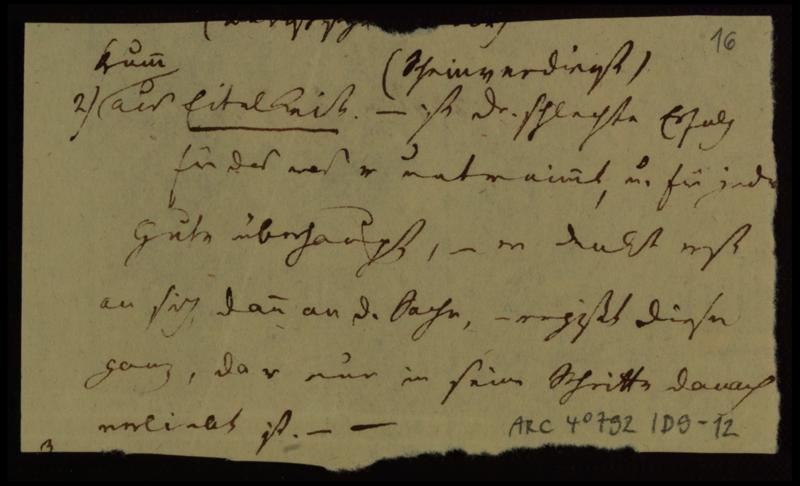 16
(Scheinverdienst)
2) aus Eitelkeit. — ist der schlechte Erfolg
für das was er unternimmt, u. für jede
Gute überhaupt, – er denkt erst
an sich dann an d. Sache, – vergißt diese
ganz, da er nur in seine Schritte danach
verliebt ist. – —
ARC 4°792 / D9-12